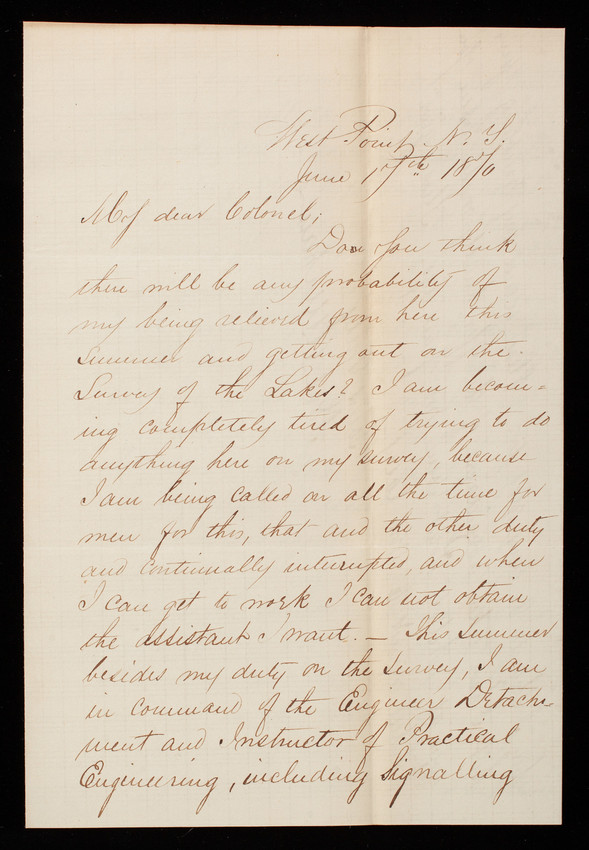 West Point, N. Y.
June 17th 1870
My dear Colonel;
Do you think
there will be any probability of
my being relieved from here this
summer and getting out on the
Survey of the Lakes? I am becom=
ing completely tired of trying to do
anything here on my survey, because
I am being called on all the time for
men for this, that and the other duty
and continually interrupted, and when
I can get to work I can not obtain
the assistant I want. — This summer
besides my duty on the survey, I am
in command of the Engineer Detach-
ment and Instructor of Practical
Engineering, including Signalling